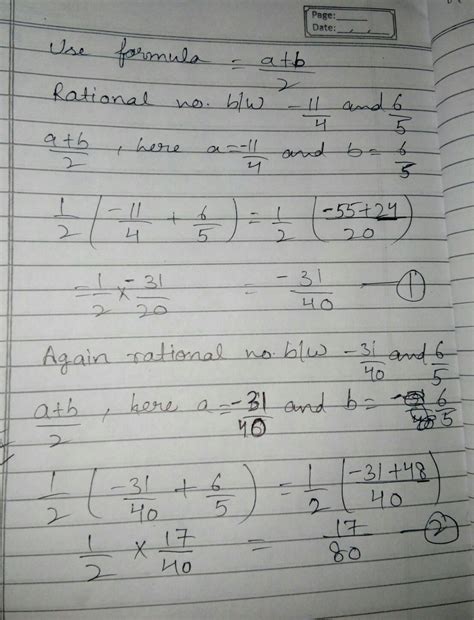 Page:
Date:
Use formula = a+b/2
Rational no. b/w -11/4 and 6/5
a+b/2, here a=-11/4 and b=6/5
1/2 (-11/4 + 6/5) = 1/2 (-55+24/20)
=1/2 × -31/20 = -31/40 — ①
Again rational no. b/w -31/40 and 6/5
a+b/2, here a=-31/40 and b= 6/5
1/2 (-31/40 + 6/5) = 1/2 (-31+48/40)
1/2 × 17/40 = 17/80 — ②